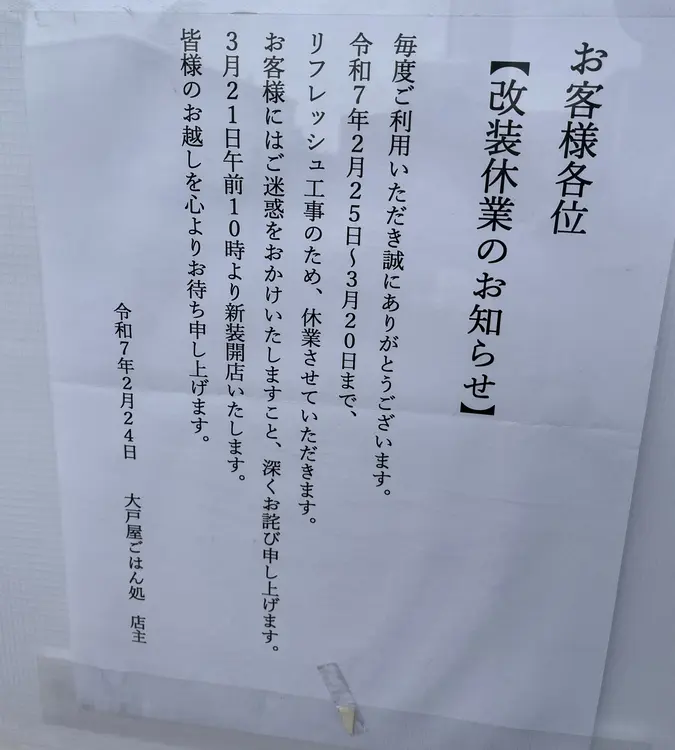 お客様各位
【改装休業のお知らせ】
毎度ご利用いただき誠にありがとうございます。
令和7年2月25日～3月20日まで、
リフレッシュ工事のため、休業させていただきます。
お客様にはご迷惑をおかけいたしますこと、深くお詫び申し上げます。
3月21日午前10時より新装開店いたします。
皆様のお越しを心よりお待ち申し上げます。
令和7年2月24日　大戸屋ごはん処　店主